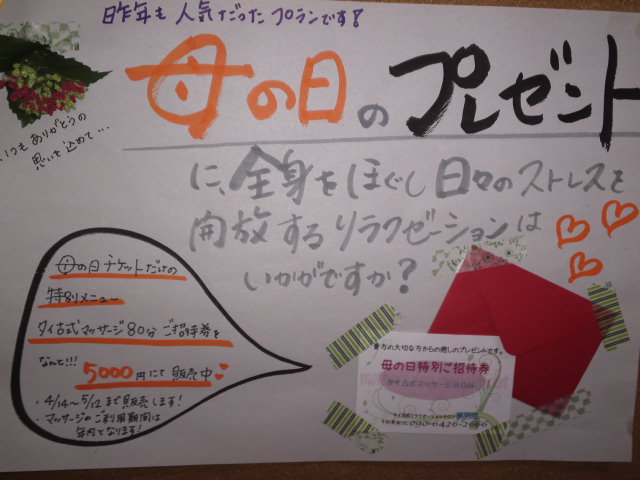 昨年も人気だったプランです!
母の日のプレゼント
いつもありがとうの
思いを込めて...
に、全身をほぐし日々のストレスを
開放するリラクゼーションは
いかがですか?
母の日チケットだけの
特別メニュー
タイ古式マッサージ80分ご招待券を
なんと!!!
5000円にて販売中
・4/14〜5/12まで販売します!
・マッサージのご利用期間は
年内となります!
貴方の大切な方からの癒しのプレゼントです。
母の日特別ご招待券
タイ古式マッサージ80分
090-6426-2666